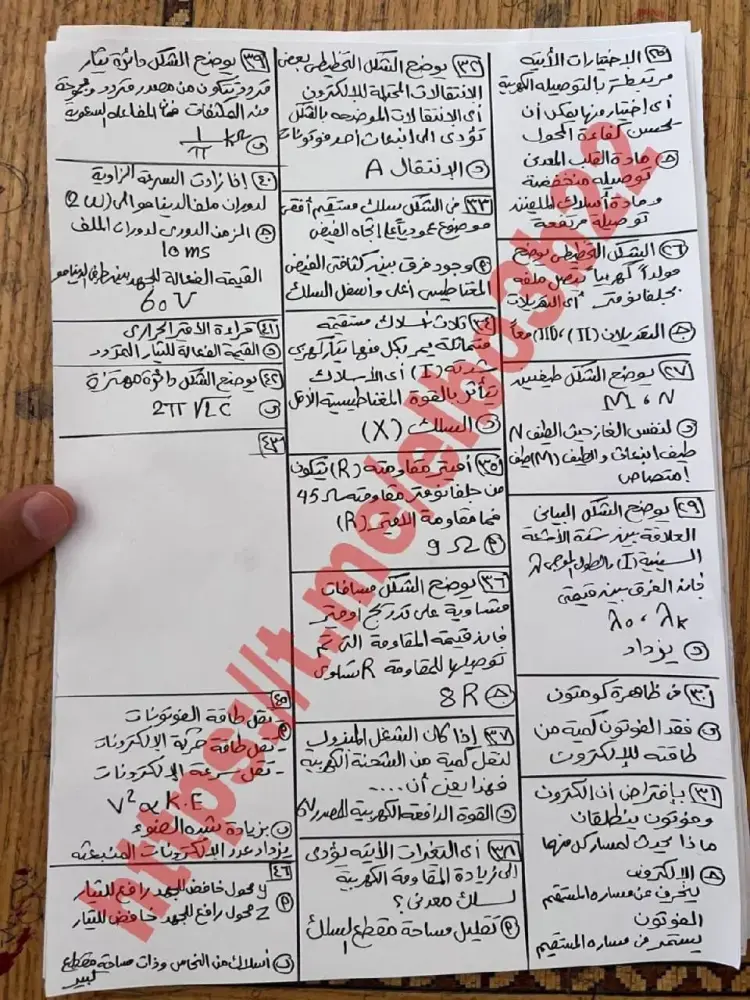 ٢٥ الاختيارات الآتية
مرتبطة بالتوصيله الكهربية
أى إختيار منها يمكن أن
يحسن كفاءة المحول
مادة القلب المعدنى
توصيله منخفضة
ومادة أسلاك الملفين
توصيلة مرتفعة
٢٦ الشكل التخطيطى يوضح
مولداً كهربياً يتصل ملفه
بجلفانومتر أى التعديلات
التعديلان (II)، (III) معاً
٢٧ يوضح الشكل طيفين
M، N
لنفس الغاز حيث الطيف N
طيف انبعاث والطيف (M) طيف
إمتصاص
٢٩ يوضح الشكل البيانى
العلاقة بين شدة الأشعة
السينية (I) والطول الموجى λ
فإن الفرق بين قيمتى
λ٠، λk
يزداد
٣٠ فى ظاهرة كومتون
فقد الفوتون كمية من
طاقته للإلكترون
٣١ بإفتراض أن إلكترون
وفوتون ينطلقان
ماذا يحدث لمسار كل منهما
الإلكترون
ينحرف عن مساره المستقيم
الفوتون
يستمر فى مساره المستقيم
٣٢ يوضح الشكل التخطيطى بعض
الانتقالات المحتملة للإلكترون
أى الإنتقالات الموضحه بالشكل
تؤدى الى انبعاث أحد فوتونات
الإنتقال A
٣٣ فى الشكل سلك مستقيم أفقى
موضوع عمودياً على إتجاه الفيض
وجود فرق بين كثافتى الفيض
المغناطيسى أعلى وأسفل السلك
٣٤ ثلاث أسلاك مستقيمة
متماثلة يمر بكل منها تيار كهربى
شدته (I) أى الأسلاك
تتأثر بالقوة المغناطيسية الأقل
السلك (X)
٣٥ أميتر مقاومته (R) يتكون
من جلفانومتر مقاومته 45 Ω
فما مقاومة الأميتر (R)
9 Ω
٣٦ يوضح الشكل مسافات
متساوية على تدريج أوميتر
فإن قيمة المقاومة التى تم
توصيلها للمقاومة R تساوى
8R
٣٧ إذا كان الشغل المبذول
لنقل كمية من الشحنة الكهربية
فهذا يعنى أن ....
القوة الدافعة الكهربية للمصدر 6V
٣٨ أى التغيرات الآتية يؤدى
إلى زيادة المقاومة الكهربية
لسلك معدنى؟
تقليل مساحة مقطع السلك
٣٩ يوضح الشكل دائرة تيار
متردد تتكون من مصدر متردد ومجموعة
من المكثفات فما المفاعله السعوية
1/π kΩ
٤٠ إذا زادت السرعة الزاوية
لدوران ملف الدينامو الى (2ω)
الزمن الدورى لدوران الملف
10 ms
القيمة الفعالة للجهد بين طرفى الدينامو
60V
٤١ قراءة الأميتر الحرارى
القيمة الفعالة للتيار المتردد
٤٢ يوضح الشكل دائرة مهتزة
2π√LC
٤٣
٤٥
- تقل طاقة الفوتونات
- تقل طاقة حركة الإلكترونات
- تقل سرعة الإلكترونات
V² ∝ K.E
بزيادة شدة الضوء
يزداد عدد الإلكترونات المنبعثة
٤٦
y محول خافض للجهد رافع للتيار
Z محول رافع للجهد خافض للتيار
أسلاك من النحاس وذات مساحة مقطع
كبير